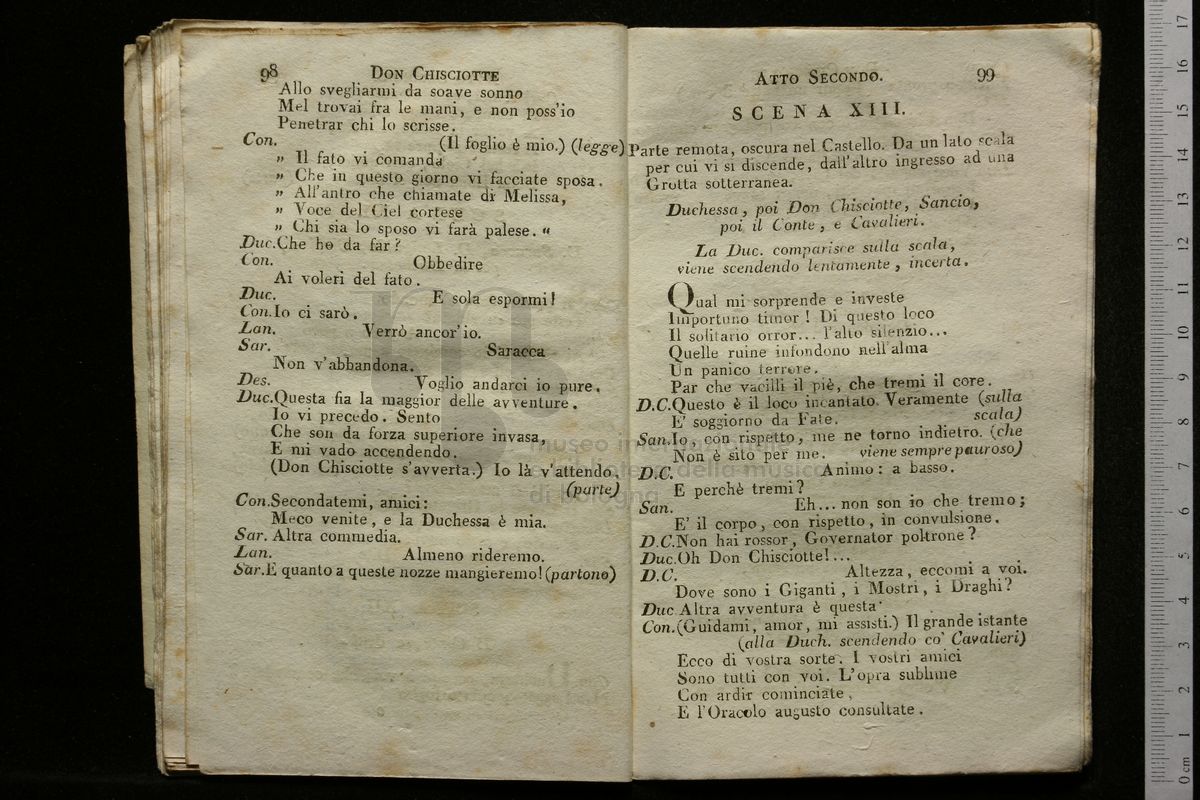 98 DON CHISCIOTTE
Allo svegliarmi da soave sonno
Mel trovai fra le mani, e non poss'io
Penetrar chi lo scrisse.
Con. (Il foglio è mio.) (legge)
" Il fato vi comanda
" Che in questo giorno vi facciate sposa.
" All'antro che chiamate di Melissa,
" Voce del Ciel cortese
" Chi sia lo sposo vi farà palese. "
Duc. Che ho da far?
Con. Obbedire
Ai voleri del fato.
Duc. E sola espormi!
Con. Io ci sarò.
Lan. Verrò ancor'io.
Sar. Saracca
Non v'abbandona.
Des. Voglio andarci io pure.
Duc. Questa fia la maggior delle avventure.
Io vi precedo. Sento
Che son da forza superiore invasa,
E mi vado accendendo.
(Don Chisciotte s'avverta.) Io là v'attendo.
(parte)
Con. Secondatemi, amici:
Meco venite, e la Duchessa è mia.
Sar. Altra commedia.
Lan. Almeno rideremo.
Sar. E quanto a queste nozze mangieremo! (partono)
ATTO SECONDO. 99
SCENA XIII.
Parte remota, oscura nel Castello. Da un lato scala
per cui vi si discende, dall'altro ingresso ad una
Grotta sotterranea.
Duchessa, poi Don Chisciotte, Sancio,
poi il Conte, e Cavalieri.
La Duc. comparisce sulla scala,
viene scendendo lentamente, incerta.
Qual mi sorprende e investe
Importuno timor! Di questo loco
Il solitario orror... l'alto silenzio...
Quelle ruine infondono nell'alma
Un panico terrore.
Par che vacilli il piè, che tremi il core.
D.C. Questo è il loco incantato. Veramente (sulla
E' soggiorno da Fate. scala)
San. Io, con rispetto, me ne torno indietro. (che
Non è sito per me. viene sempre pauroso)
D.C. Animo: a basso.
E perchè tremi?
San. Eh... non son io che tremo;
E' il corpo, con rispetto, in convulsione.
D.C. Non hai rossor, Governator poltrone?
Duc. Oh Don Chisciotte!...
D.C. Altezza, eccomi a voi.
Dove sono i Giganti, i Mostri, i Draghi?
Duc Altra avventura è questa.
Con. (Guidami, amor, mi assisti.) Il grande istante
(alla Duch. scendendo co' Cavalieri)
Ecco di vostra sorte. I vostri amici
Sono tutti con voi. L'opra sublime
Con ardir cominciate,
E l'Oracolo augusto consultate.
museo internazionale
e biblioteca della musica
di bologna
0 cm 1 2 3 4 5 6 7 8 9 10 11 12 13 14 15 16 17